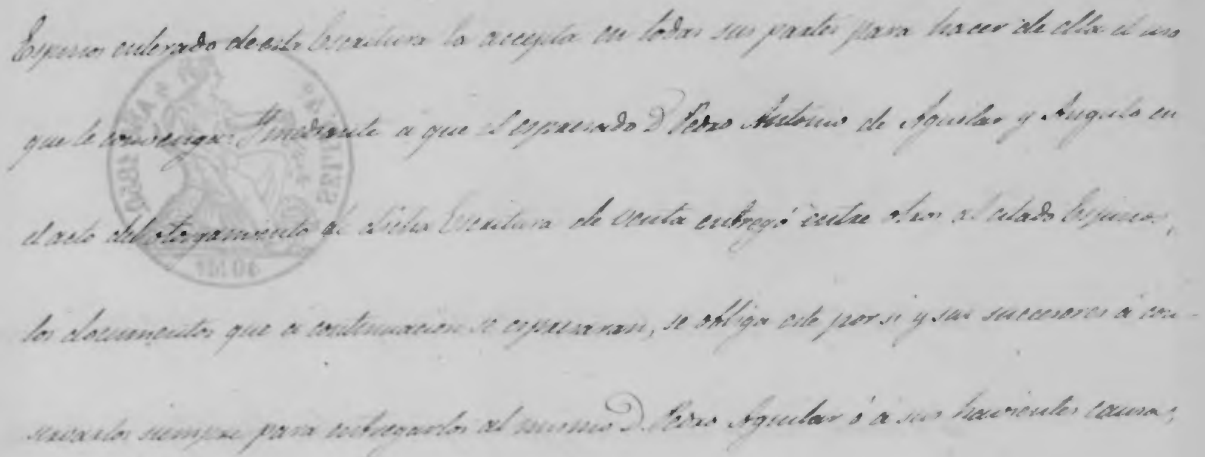 Espinos enterado de esta Escritura la accepta en todas sus partes para hacer de ella el uso
que le convenga. Y mediante a que el espresado D. Pedro Antonio de Aguilar y Angulo en
el acto del otorgamiento de dicha Escritura de venta entregó entre otros al citado Espinos,
los documentos que a continuacion se espresaran, se obliga este por si y sus succesores á con-
servarlos siempre para entregarlos al mismo D. Pedro Aguilar ó á sus havientes causa,